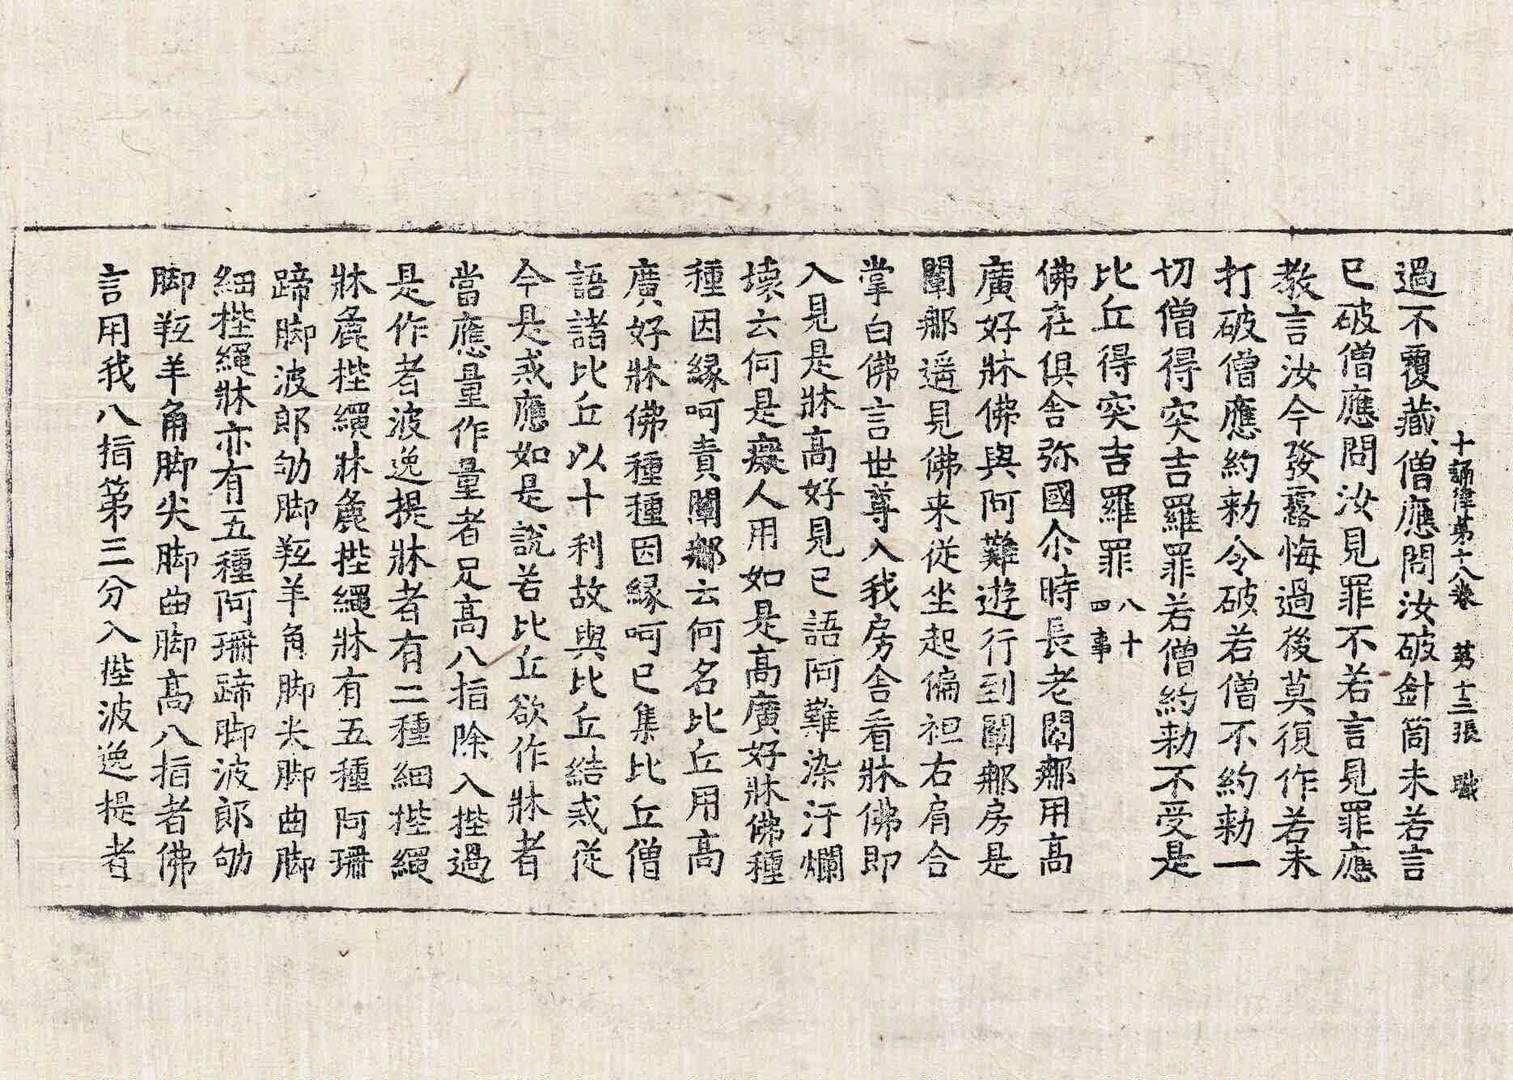 十誦律第十八卷 第十三張 職
過不覆藏僧應問汝破針筒未若言
已破僧應問汝見罪不若言見罪應
教言汝今發露悔過後莫復作若未
打破僧應約勅令破若僧不約勅一
切僧得突吉羅罪若僧約勅不受是
比丘得突吉羅罪 八十四事
佛在俱舍弥國尒時長老闡那用高
廣好牀佛與阿難遊行到闡那房是
闡那遥見佛来従坐起偏袒右肩合
掌白佛言世尊入我房舍看牀佛即
入見是牀高好見已語阿難染汙爛
壊云何是癡人用如是高廣好牀佛種
種因縁呵責闡那云何名比丘用高
廣好牀佛種種因縁呵已集比丘僧
語諸比丘以十利故與比丘結戒従
今是戒應如是說若比丘欲作牀者
當應量作量者足高八指除入陛過
是作者波逸提牀者有二種細陛繩
牀麁陛繩牀麁陛繩牀有五種阿珊
蹄脚波郎劬脚羝羊角脚尖脚曲脚
細陛繩牀亦有五種阿珊蹄脚波郎劬
脚羝羊角脚尖脚曲脚高八指者佛
言用我八指第三分入陛波逸提者